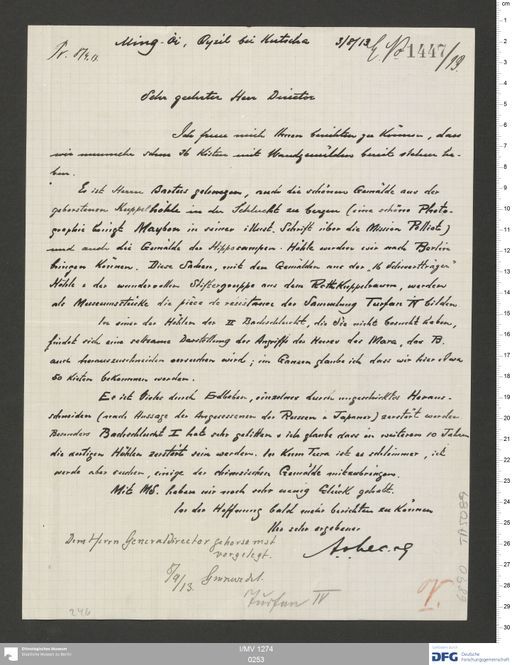 Ming-Öi, Qyzil bei Kutscha 3/8/13
E. No 1447/13
Sehr geehrter Herr Director
Ich freue mich Ihnen berichten zu können, dass
wir nunmehr schon 36 Kisten mit Wandgemälden bereit stehen ha-
ben.
Es ist Herrn Bartus gelungen, auch die schönen Gemälde aus der
geborstenen Kuppelhöhle in der Schlucht zu bergen (eine schöne Photo-
graphie bringt Maybon in seiner illust. Schrift über die Mission Pelliot)
und auch die Gemälde der Hippocampen-Höhle werden wir nach Berlin
bringen können. Diese Sachen, mit den Gemälden aus der "16 Schwertträger"
Höhle & der wundervollen Stiftergruppe aus dem Roth.Kuppelraum, werden
als Museumsstücke die pièce de resistance der Sammlung Turfan IV bilden.
In einer der Höhlen der II Badeschlucht, die Sie nicht besucht haben,
findet sich eine seltsame Darstellung des Angriffs des Heeres des Mara, das B.
auch herauszuschneiden versuchen wird; im Ganzen glaube ich dass wir hier etwa
50 Kisten bekommen werden.
Es ist Vieles durch Erdbeben, einzelnes durch ungeschicktes Heraus-
schneiden (nach Aussage der Angesessenen der Russen & Japaner) zerstört worden
Besonders Badschlucht I hat sehr gelitten & ich glaube dass in weiteren 10 Jahren
die dortigen Höhlen zerstört sein werden. In Kum Tura ist es schlimmer, ich
werde aber suchen, einige der chinesischen Gemälde mitzubringen.
Mit MS. haben wir noch sehr wenig Glück gehabt.
In der Hoffnung bald mehr berichten zu können
Ihr sehr ergebener
Dem Herrn Generaldirector gehorsamst
vorgelegt.
5/9/13. Grünwedel.
Turfan IV
246
Ethnologisches Museum
Staatliche Museen zu Berlin
I/MV 1274
0253
DFG Deutsche
Forschungsgemeinschaft